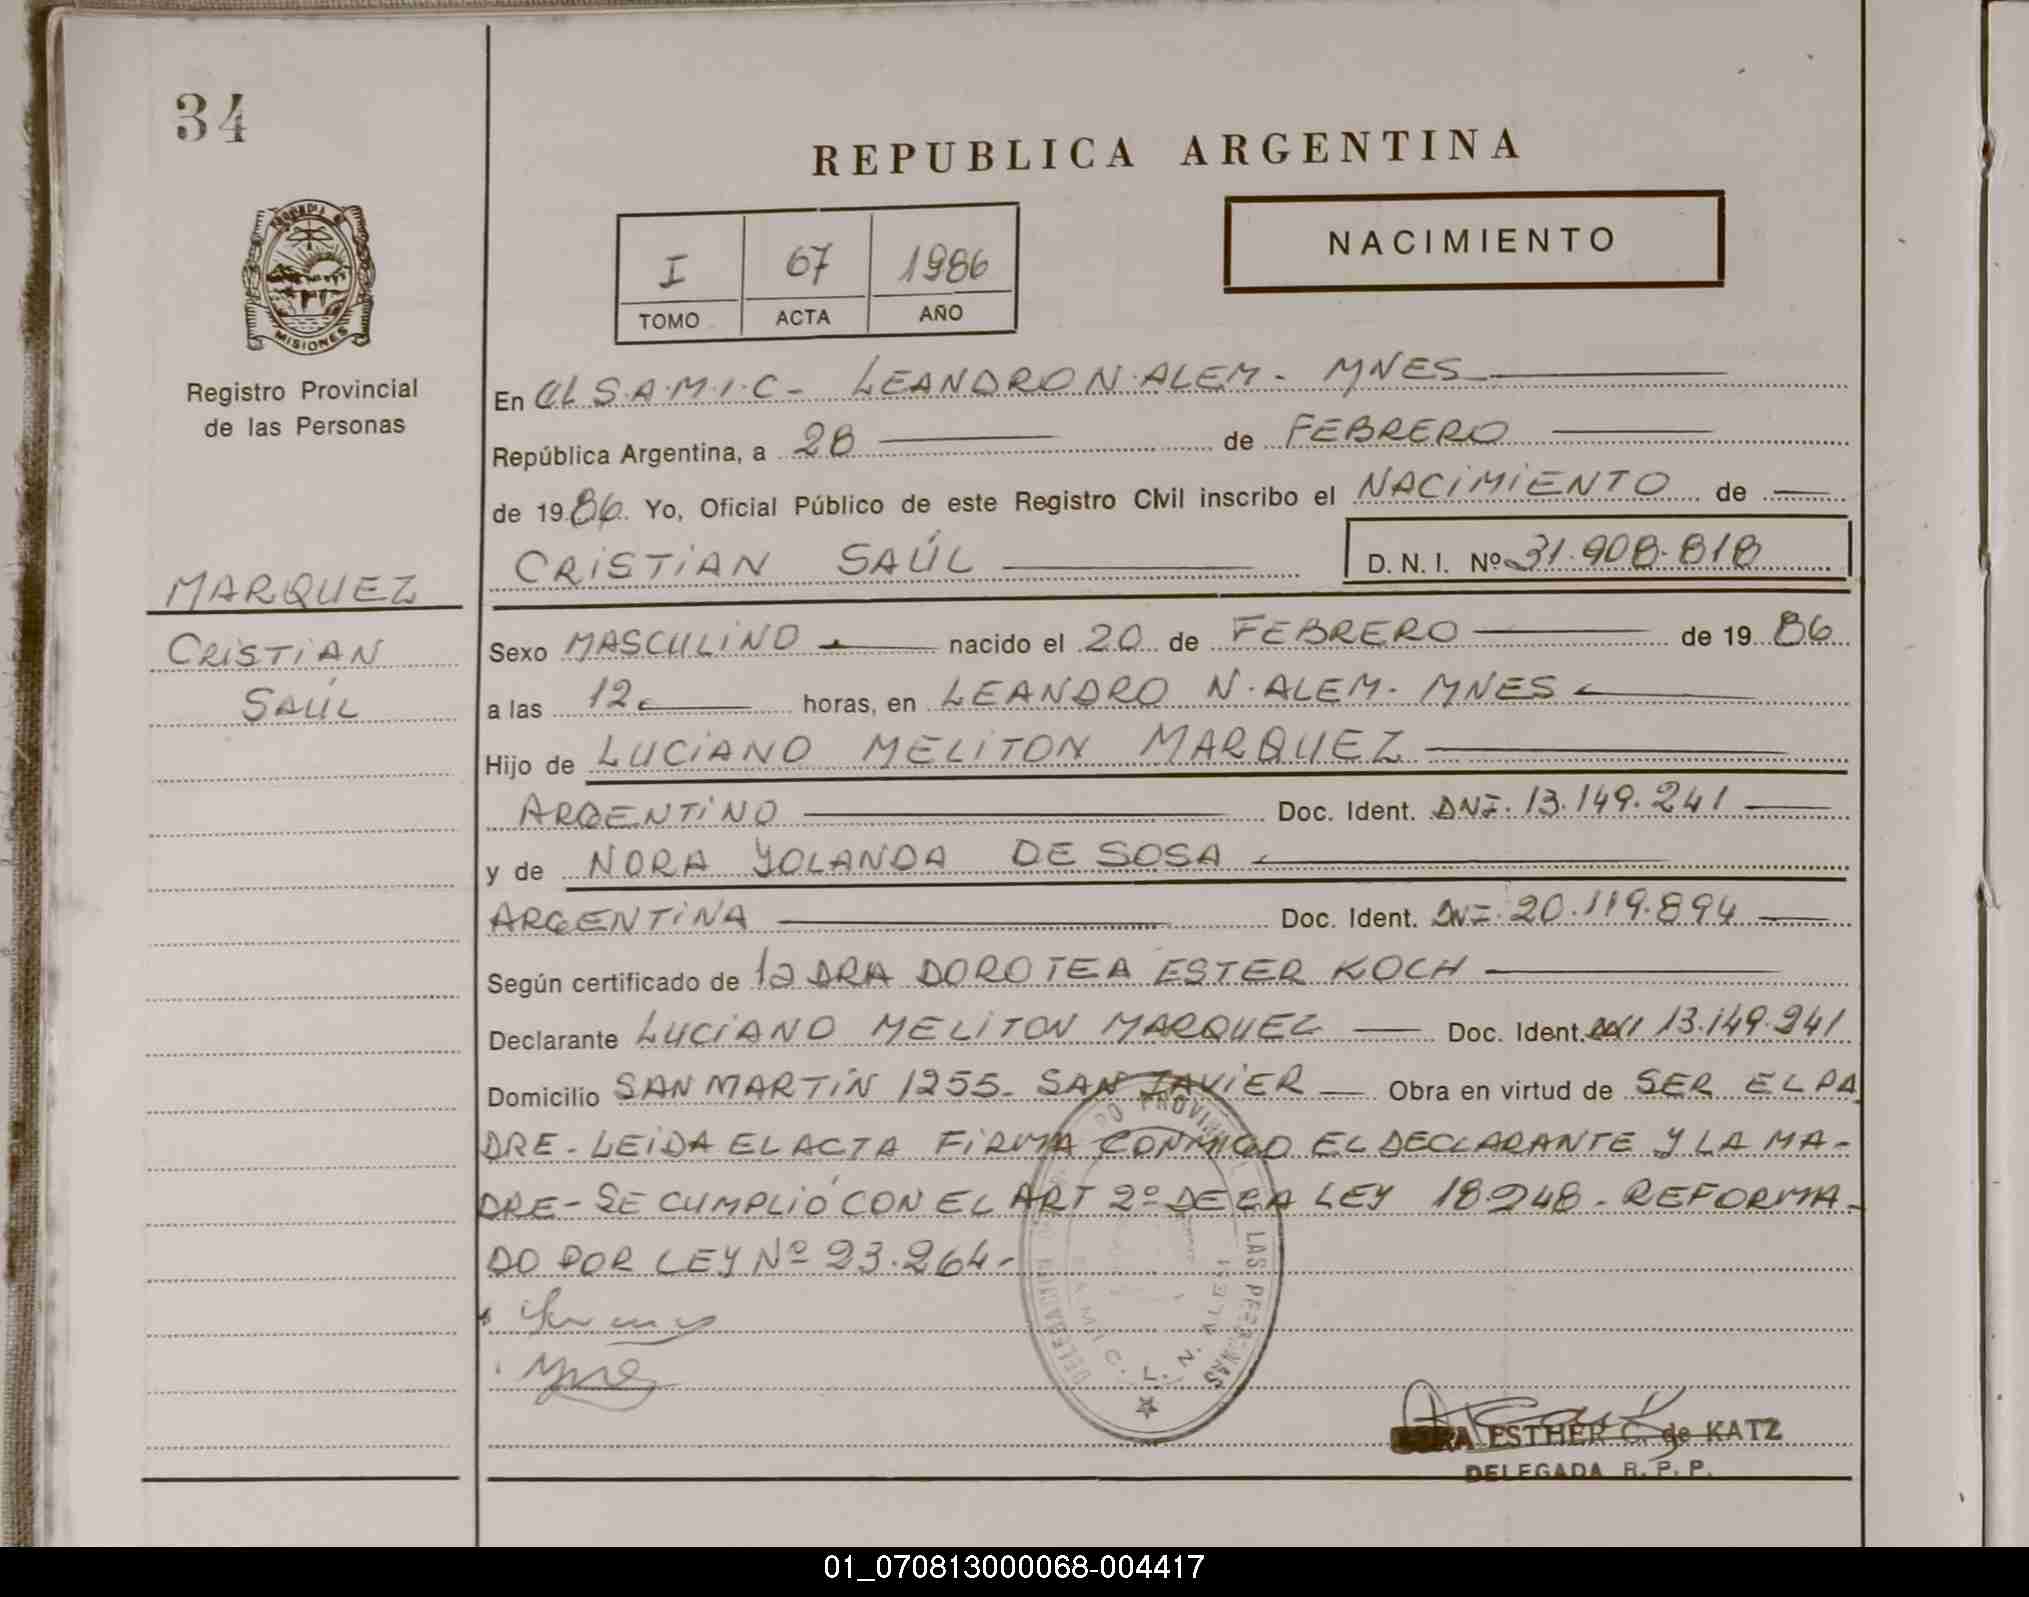 34
REPUBLICA ARGENTINA
NACIMIENTO
I 67 1986
TOMO ACTA AÑO
MISIONES
Registro Provincial
de las Personas
En el S.A.M.I.C- LEANDRO N. ALEM- MNES
República Argentina, a 28 de FEBRERO
de 1986. Yo, Oficial Público de este Registro Civil inscribo el NACIMIENTO de
CRISTIAN SAÚL D. N. I. Nº 31.908.818
MARQUEZ
CRISTIAN
SAÚL
Sexo MASCULINO nacido el 20 de FEBRERO de 1986
a las 12 horas, en LEANDRO N. ALEM- MNES
Hijo de LUCIANO MELITON MARQUEZ
ARGENTINO Doc. Ident. DNI. 13.149.241
y de NORA YOLANDA DE SOSA
ARGENTINA Doc. Ident. DNI. 20.119.894
Según certificado de la DRA DOROTEA ESTER KOCH
Declarante LUCIANO MELITON MARQUEZ Doc. Ident. DNI 13.149.241
Domicilio SAN MARTIN 1255- SAN JAVIER Obra en virtud de SER EL PA
DRE- LEIDA EL ACTA FIRMA CONMIGO EL DECLARANTE Y LA MA-
DRE- SE CUMPLIÓ CON EL ART 2º DE LA LEY 18.248- REFORMA-
DO POR LEY Nº 23.264-
ESTHER C. de KATZ
DELEGADA R. P. P.
01_070813000068-004417